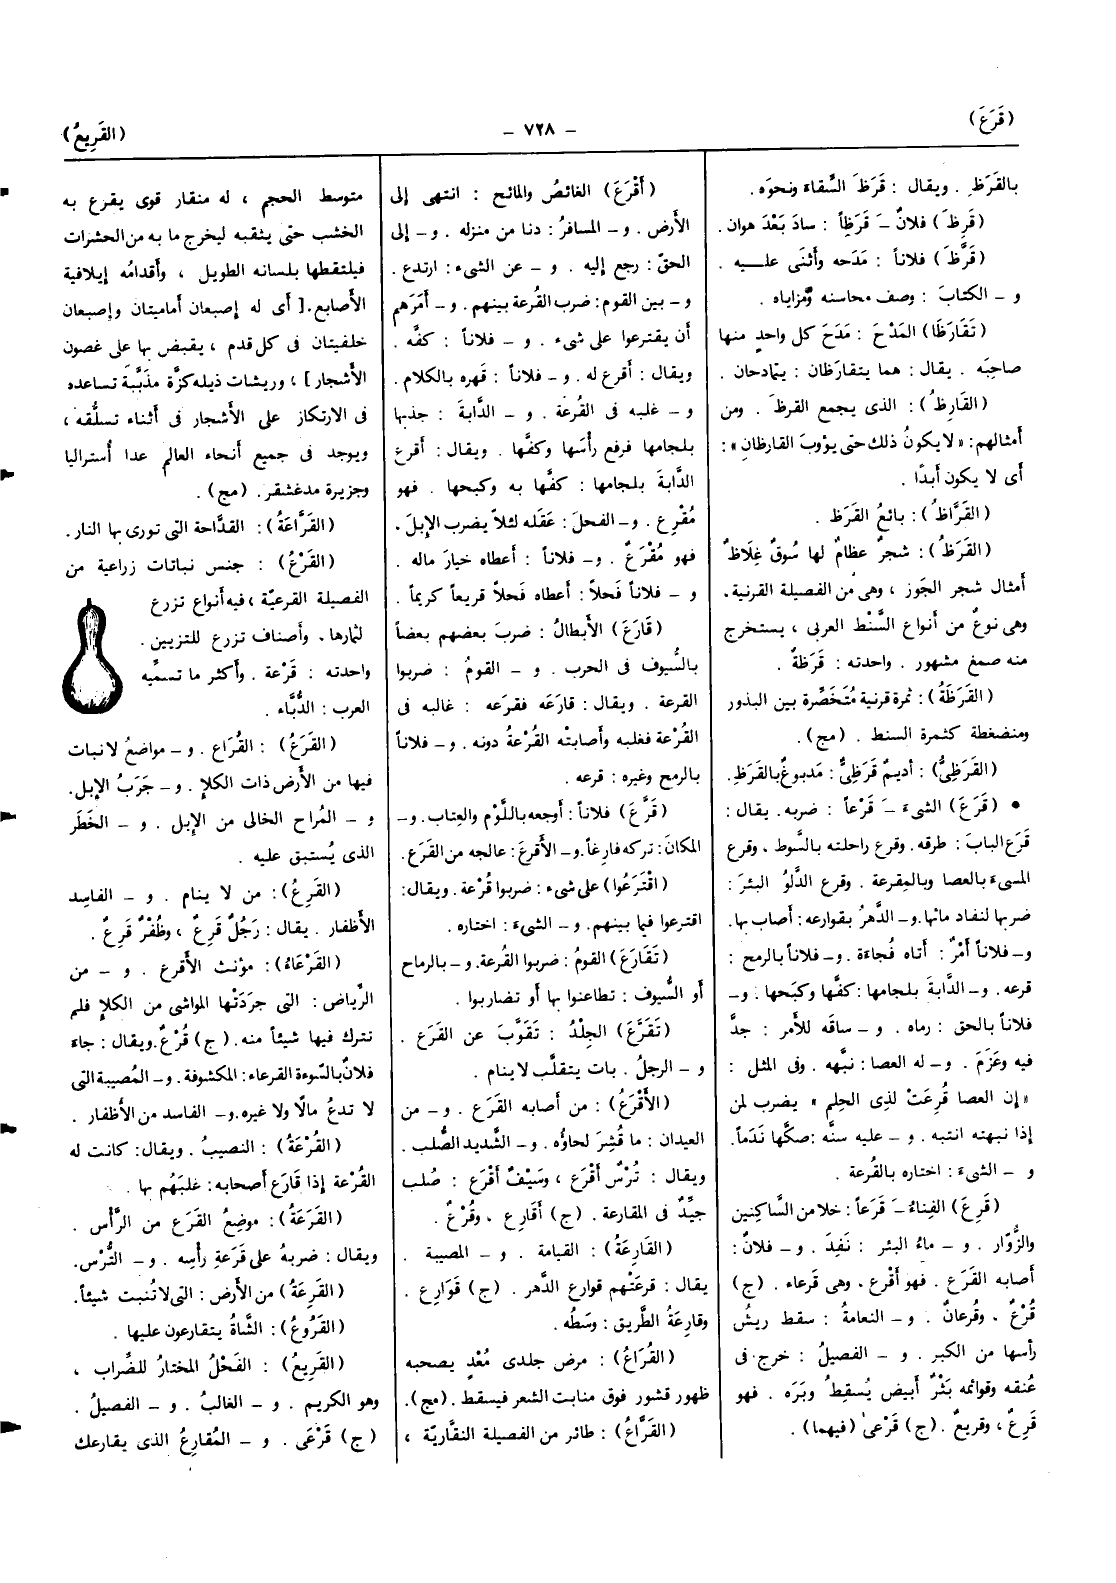 (قَرَعَ)
– ٧٢٨ –
(القَرِيعُ)
بالقَرَظِ . ويقال : قَرَظَ السِّقاءَ ونحوَه .
(قَرِظَ) فلانٌ – قَرَظاً : سادَ بَعْدَ هوان .
(قَرَّظَ) فلاناً : مَدَحَه وأَثنَى علـــيه .
و – الكتابَ : وصف محاسنه ومزاياه .
(تَقَارَظَا) المَدْحَ : مَدَحَ كل واحدٍ منها
صاحِبَه . يقال : هما يتقارَظان : يتمادحان .
(القَارِظُ) : الذى يجمع القرظَ . ومن
أمثالهم: «لا يكونُ ذلك حتى يؤوبَ القارظان» :
أى لا يكون أبدًا .
(القَرَّاظُ) : بائعُ القَرَظ .
(القَرَظُ) : شجرٌ عظامٌ لها سُوقٌ غِلاظٌ
أمثال شجر الجَوز ، وهى من الفصيلة القرنية،
وهى نوعٌ من أنواع السَّنْط العربى ، يستخرج
منه صمغ مشهور . واحدته : قَرَظةٌ .
(القَرَظَةُ) : ثمرة قرنية مُتَخَصِّرة بين البذور
ومنضغطة كثمرة السنط . (مج) .
(القَرَظِيُّ) : أديمٌ قَرَظِيٌّ : مَدبوغٌ بالقَرَظِ .
• (قَرَعَ) الشىءَ – قَرْعاً : ضربه. يقال :
قَرَع البابَ : طرقه. وقرع راحلته بالسوط ، وقرع
المسىءَ بالعصا وبالمِقرعة . وقرع الدَّلوُ البئرَ :
ضربها لنفاد مائها.و– الدَّهرُ بقوارعه: أصاب بها.
و– فلاناً أمْرٌ : أتاه فُجاءَة .و– فلاناً بالرمح :
قرعه . و– الدَّابةَ بلجامها : كفَّها وكبَحها . و–
فلاناً بالحق : رماه . و – ساقَه للأمر : جدَّ
فيه وعَزَمَ . و– له العصا : نبَّهه . وفى المثل :
«إن العصا قُرعَتْ لذِى الحِلمِ» يضرب لمن
إذا نبهته انتبه . و – عليه سنَّه : صكَّها نَدَماً .
و – الشىءَ : اختاره بالقُرعة .
(قَرِعَ) الفِناءُ – قَرَعاً : خلا من السَّاكِنين
والزُّوَّار . و – ماءُ البئر : نَفِدَ . و– فلانٌ :
أصابه القَرَع . فهو أقْرع ، وهى قَرعاء . (ج)
قُرْعٌ ، وقُرعانٌ . و– النعامةُ : سقط ريشُ
رأسها من الكبر . و – الفصيلُ : خرج فى
عُنقه وقوائمه بَثْرٌ أبيض يُسقِطُ وبَرَه . فهو
قَرِعٌ ، وقَريعٌ . (ج) قَرْعىٰ (فيهما) .
(أَقْرَعَ) الغائصُ والمائح : انتهى إلى
الأرض . و – المسافرُ : دنا من منزله . و– إلى
الحقّ : رجع إليه . و – عن الشىء : ارتدع .
و – بين القوم: ضرب القُرعة بينهم. و– أَمَرَهم
أن يقترعوا على شىء . و – فلاناً : كفَّه .
ويقال : أقرع له . و– فلاناً : قَهره بالكلام .
و – غلبه فى القُرعة . و – الدَّابةَ : جذبها
بلجامها فرفع رأسَها وكفَّها . ويقال : أقرع
الدَّابةَ بلجامها : كفَّها به وكبحها . فهو
مُقْرِع . و– الفحلَ : عَقَله لئلاَّ يضرب الإبل .
فهو مُقْرَعٌ . و– فلاناً : أعطاه خيارَ ماله .
و – فلاناً فَحلاً : أعطاه فَحلاً قريعاً كريماً .
(قَارَعَ) الأبطالُ : ضربَ بعضهم بعضاً
بالسُّيوف فى الحرب . و – القومُ : ضربوا
القرعة . ويقال : قارَعَه فقرَعَه : غالبه فى
القُرْعة فغلبه وأصابتْه القُرْعةُ دونه . و– فلاناً
بالرمح وغيره : قرعه .
(قَرَّعَ) فلاناً : أوجعه باللَّوْم والعِتاب . و–
المكانَ: تركه فارِغاً.و– الأقرعَ: عالجه من القَرَع.
(اقْتَرَعُوا) على شىء : ضربوا قُرْعة. ويقال:
اقترعوا فيما بينهم. و – الشىءَ : اختاره.
(تَقَارَعَ) القومُ : ضربوا القُرعة. و – بالرماح
أو السُّيوف : تطاعنوا بها أو تضاربوا .
(تَقَرَّعَ) الجِلْدُ : تَقَوَّبَ عن القَرَع .
و – الرجلُ . بات يتقلَّب لا ينام .
(الأَقْرَعُ) : من أصابه القَرَع . و – من
العيدان : ما قُشِرَ لحاؤُه . و– الشَّديد الصُّلب .
ويقال : تُرْسٌ أقْرَع ، وسَيْفٌ أقْرَع : صُلب
جيِّدٌ فى المقارعة . (ج) أقَارِع ، وقُرْعٌ .
(القَارِعَةُ) : القيامة . و – المصيبة .
يقال : قرعَتْهم قوارع الدَّهر . (ج) قَوَارع .
وقارِعَةُ الطَّريق : وسَطُه .
(القُرَاعُ) : مرض جلدى مُعْدٍ يصحبه
ظهور قشور فوق منابت الشعر فيسقط . (مج) .
(القَرَّاعُ) : طائر من الفصيلة النقَّاريّة ،
متوسط الحجم ، له منقار قوى يقرع به
الخشب حتى يثقبه ليخرج ما به من الحشرات
فيلتقطها بلسانه الطويل ، وأقدامُه إيلافية
الأصابع.[ أى له إصبعان أماميتان وإصبعان
خلفيتان فى كل قدم ، يقبض بها على غصون
الأشجار ] ، وريشات ذيله كزَّة مذبَّبَة تساعده
فى الارتكاز على الأشجار فى أثناء تسلُّقه ،
ويوجد فى جميع أنحاء العالم عدا أستراليا
وجزيرة مدغشقر. (مج) .
(القَرَّاعَةُ) : القدَّاحة التى تورى بها النار .
(القَرْعُ) : جنس نباتات زراعية من
الفصيلة القرعيّة ، فيه أنواع تزرع
لثمارها، وأصناف تزرع للتزيين .
واحدته : قَرْعة . وأكثر ما تسمِّيه
العرب : الدُّبَّاء .
(القَرَعُ) : القُراع . و– مواضعُ لا نبات
فيها من الأرض ذات الكلإِ . و– جَرَبُ الإبل.
و – المُراح الخالى من الإبل . و – الخَطَر
الذى يُستبق عليه .
(القَرِعُ) : من لا ينام . و – الفاسد
الأظفار . يقال : رَجُلٌ قَرِعٌ ، وظُفْرٌ قَرِعٌ .
(القَرْعَاءُ) : مؤنث الأقرع . و – من
الرِّياض : التى جرَدَتْها المواشى من الكلإِ فلم
تترك فيها شيئاً منه. (ج) قُرْعٌ.ويقال : جاءَ
فلانٌ بالسَّوءة القرعاء : المكشوفة. و– المُصيبة التى
لا تدعُ مالًا ولا غيره.و– الفاسد من الأظفار .
(القُرْعَةُ) : النصيبُ . ويقال: كانت له
القُرْعة إذا قارَع أصحابه : غلبَهُم بها .
(القَرَعَةُ) : موضِعُ القَرَع من الرَّأس .
ويقال : ضربهُ على قَرَعةِ رأسِه . و– التُّرْس.
(القَرِعَةُ) من الأرض : التى لا تُنبت شيئاً.
(القَرُوعُ) : الشَّاةُ يتقارعون عليها .
(القَرِيعُ) : الفَحْلُ المختارُ للضِّراب ،
وهو الكريم . و – الغالبُ . و – الفصيلُ .
(ج) قَرْعَى . و – المُقارعُ الذى يقارعك